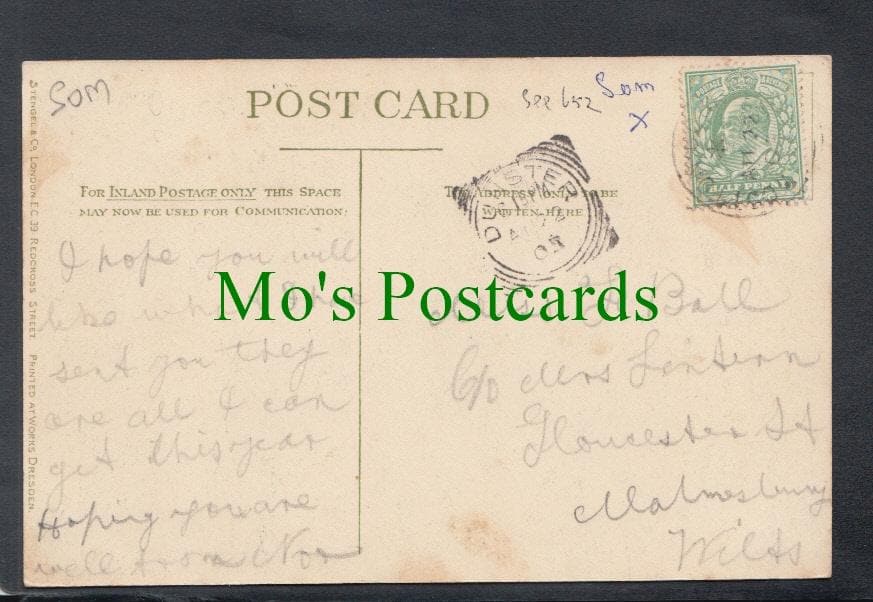 SOM
POST CARD
See 652
Som
X
POSTAGE REVENUE
HALF PENNY
FOR INLAND POSTAGE ONLY THIS SPACE
MAY NOW BE USED FOR COMMUNICATION.
THE ADDRESS ONLY TO BE
WRITTEN HERE
DUNSTER
05
STENGEL & CO. LONDON E.C. 39 REDCROSS STREET. PRINTED AT WORKS DRESDEN.
Mo's Postcards
I hope you will
like what I have
sent you they
are all I can
get this year
Hoping you are
well from Nor
Miss Ball
C/o Mrs Lintern
Gloucester St
Malmesbury
Wilts